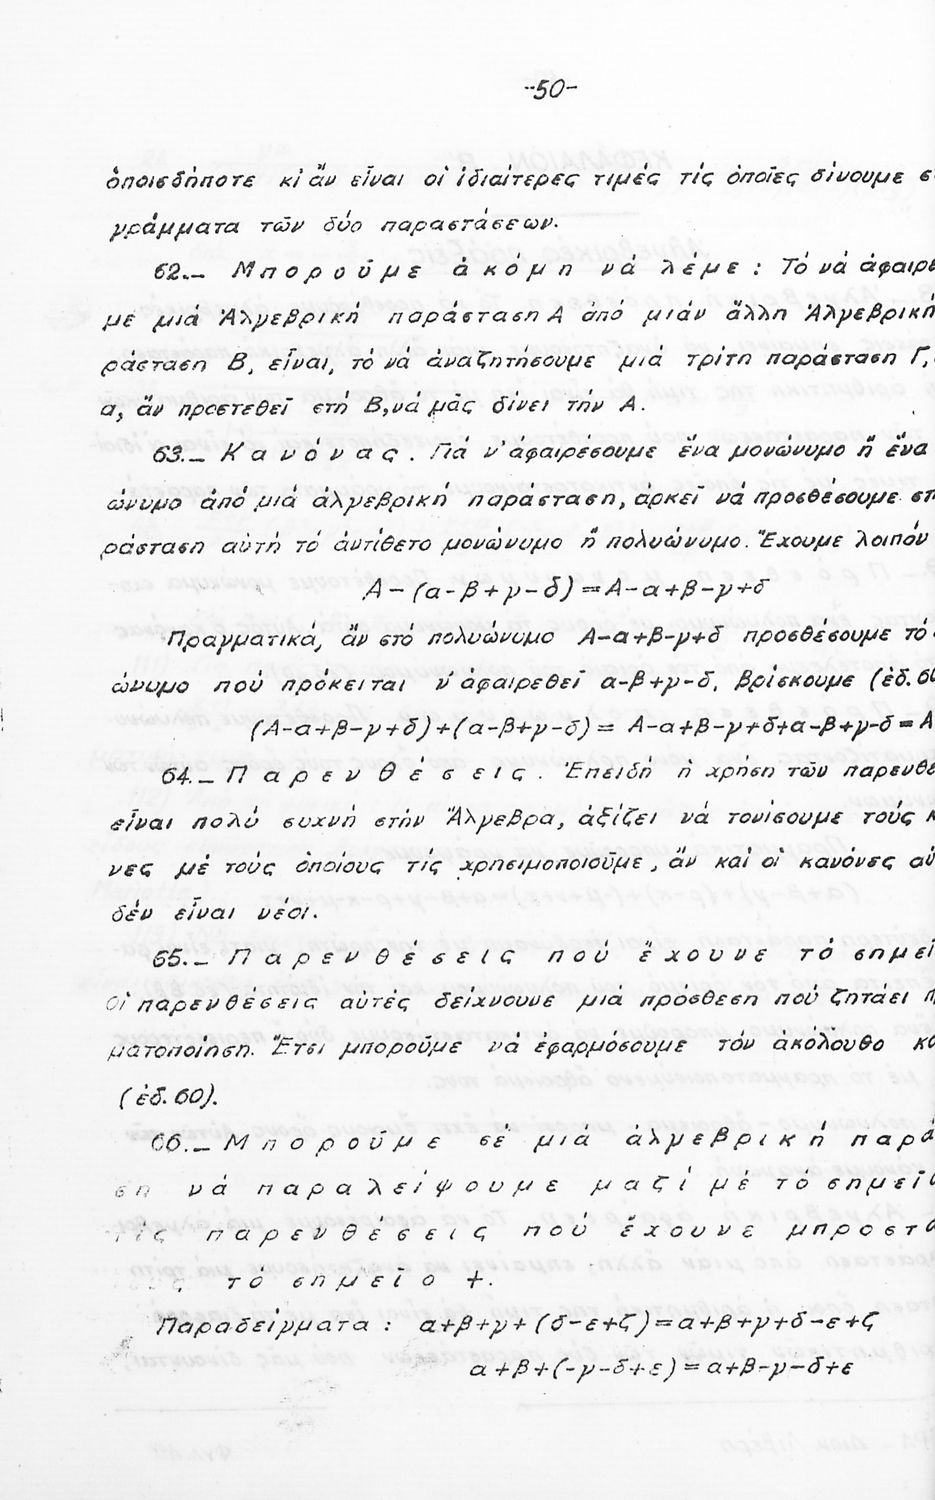 -50-
ὁποιεσδήποτε κι ἄν εἶναι οἱ ἰδιαίτερες τιμές τίς ὁποῖες δίνουμε σ
γράμματα τῶν δύο παραστάσεων.
62.— Μποροῦμε ἀκόμη νά λέμε: Τό νά ἀφαιρέ
με μιά Ἀλγεβρική παράσταση Α ἀπό μιάν ἄλλη Ἀλγεβρική
ράσταση Β, εἶναι, τό νά ἀναζητήσουμε μιά τρίτη παράσταση Γ,
α, ἄν προστεθεῖ στή Β,νά μᾶς δίνει τήν Α.
63.— Κανόνας. Γιά ν' ἀφαιρέσουμε ἕνα μονώνυμο ἤ ἕνα
ώνυμο ἀπό μιά ἀλγεβρική παράσταση, ἀρκεῖ νά προσθέσουμε στ
ράσταση αὐτή τό ἀντίθετο μονώνυμο ἤ πολυώνυμο. Ἔχουμε λοιπόν
Α-(α-β+γ-δ)=Α-α+β-γ+δ
Πραγματικά, ἄν στό πολυώνυμο Α-α+β-γ+δ προσθέσουμε τό
ώνυμο πού πρόκειται ν' ἀφαιρεθεῖ α-β+γ-δ, βρίσκουμε (ἐδ. 60
(Α-α+β-γ+δ)+(α-β+γ-δ)= Α-α+β-γ+δ+α-β+γ-δ=Α
64.— Παρενθέσεις. Ἐπειδή ἡ χρήση των παρενθέ
εἶναι πολύ συχνή στήν Ἄλγεβρα, ἀξίζει νά τονίσουμε τούς κ
νες μέ τούς ὁποίους τίς χρησιμοποιοῦμε, ἄν καί οἱ κανόνες αὐ
δέν εἶναι νέοι.
65.— Παρενθέσεις πού ἔχουνε τό σημεῖ
Οἱ παρενθέσεις αὐτές δείχνουνε μιά πρόσθεση πού ζητάει π
ματοποίηση. Ἔτσι μποροῦμε νά ἐφαρμόσουμε τόν ἀκόλουθο κα
(ἐδ. 60).
66.— Μποροῦμε σέ μιά ἀλγεβρική παρά
ση νά παραλείψουμε μαζί μέ τό σημεῖ
τίς παρενθέσεις πού ἔχουνε μπροστά
τό σημεῖο +.
Παραδείγματα: α+β+γ+(δ-ε+ζ)=α+β+γ+δ-ε+ζ
α+β+(-γ-δ+ε)=α+β-γ-δ+ε